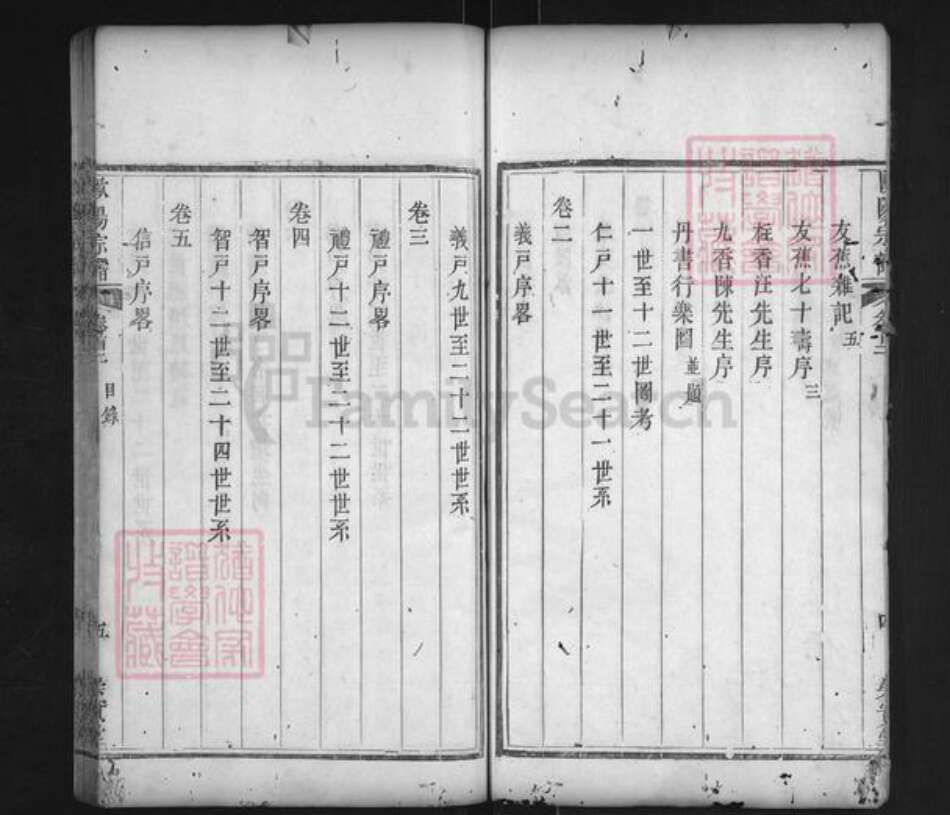 友蕉雜記 五
友蕉七十壽序 三
桂香汪先生序
九香陳先生序
丹書行樂圖 並題
一世至十二世圖考
仁戸十一世至二十一世系
卷二
義戸序畧
義戸九世至二十二世世系
卷三
禮戸序畧
禮戸十二世至二十二世世系
卷四
智戸序畧
智戸十二世至二十四世世系
卷五
信戸序畧
歐陽宗譜
目錄
五
FamilySearch
譜學會
收藏